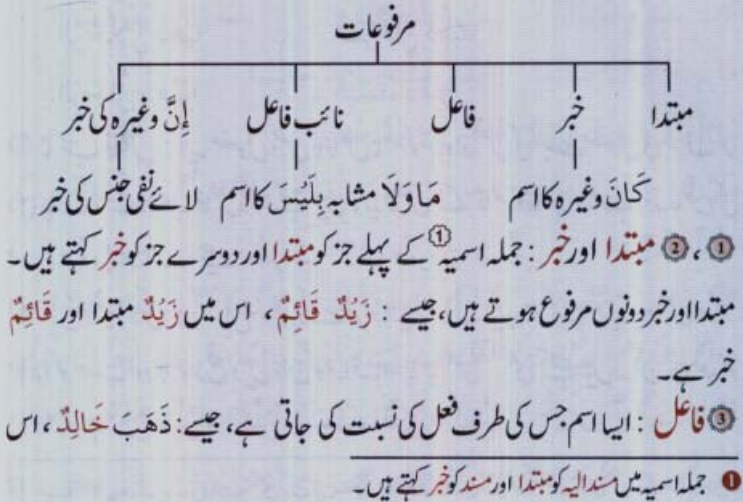 مرفوعات
مبتدا خبر فاعل نائب فاعل إِنَّ وغیرہ کی خبر
كَانَ وغیرہ کا اسم مَا وَلَا مشابہ بِلَيْسَ کا اسم لائے نفی جنس کی خبر
①، ② مبتدا اور خبر : جملہ اسمیہ① کے پہلے جز کو مبتدا اور دوسرے جز کو خبر کہتے ہیں۔
مبتدا اور خبر دونوں مرفوع ہوتے ہیں، جیسے : زَيْدٌ قَائِمٌ ، اس میں زَيْدٌ مبتدا اور قَائِمٌ
خبر ہے۔
③ فاعل : ایسا اسم جس کی طرف فعل کی نسبت کی جاتی ہے، جیسے : ذَهَبَ خَالِدٌ، اس
❶ جملہ اسمیہ میں مسند الیہ کو مبتدا اور مسند کو خبر کہتے ہیں۔